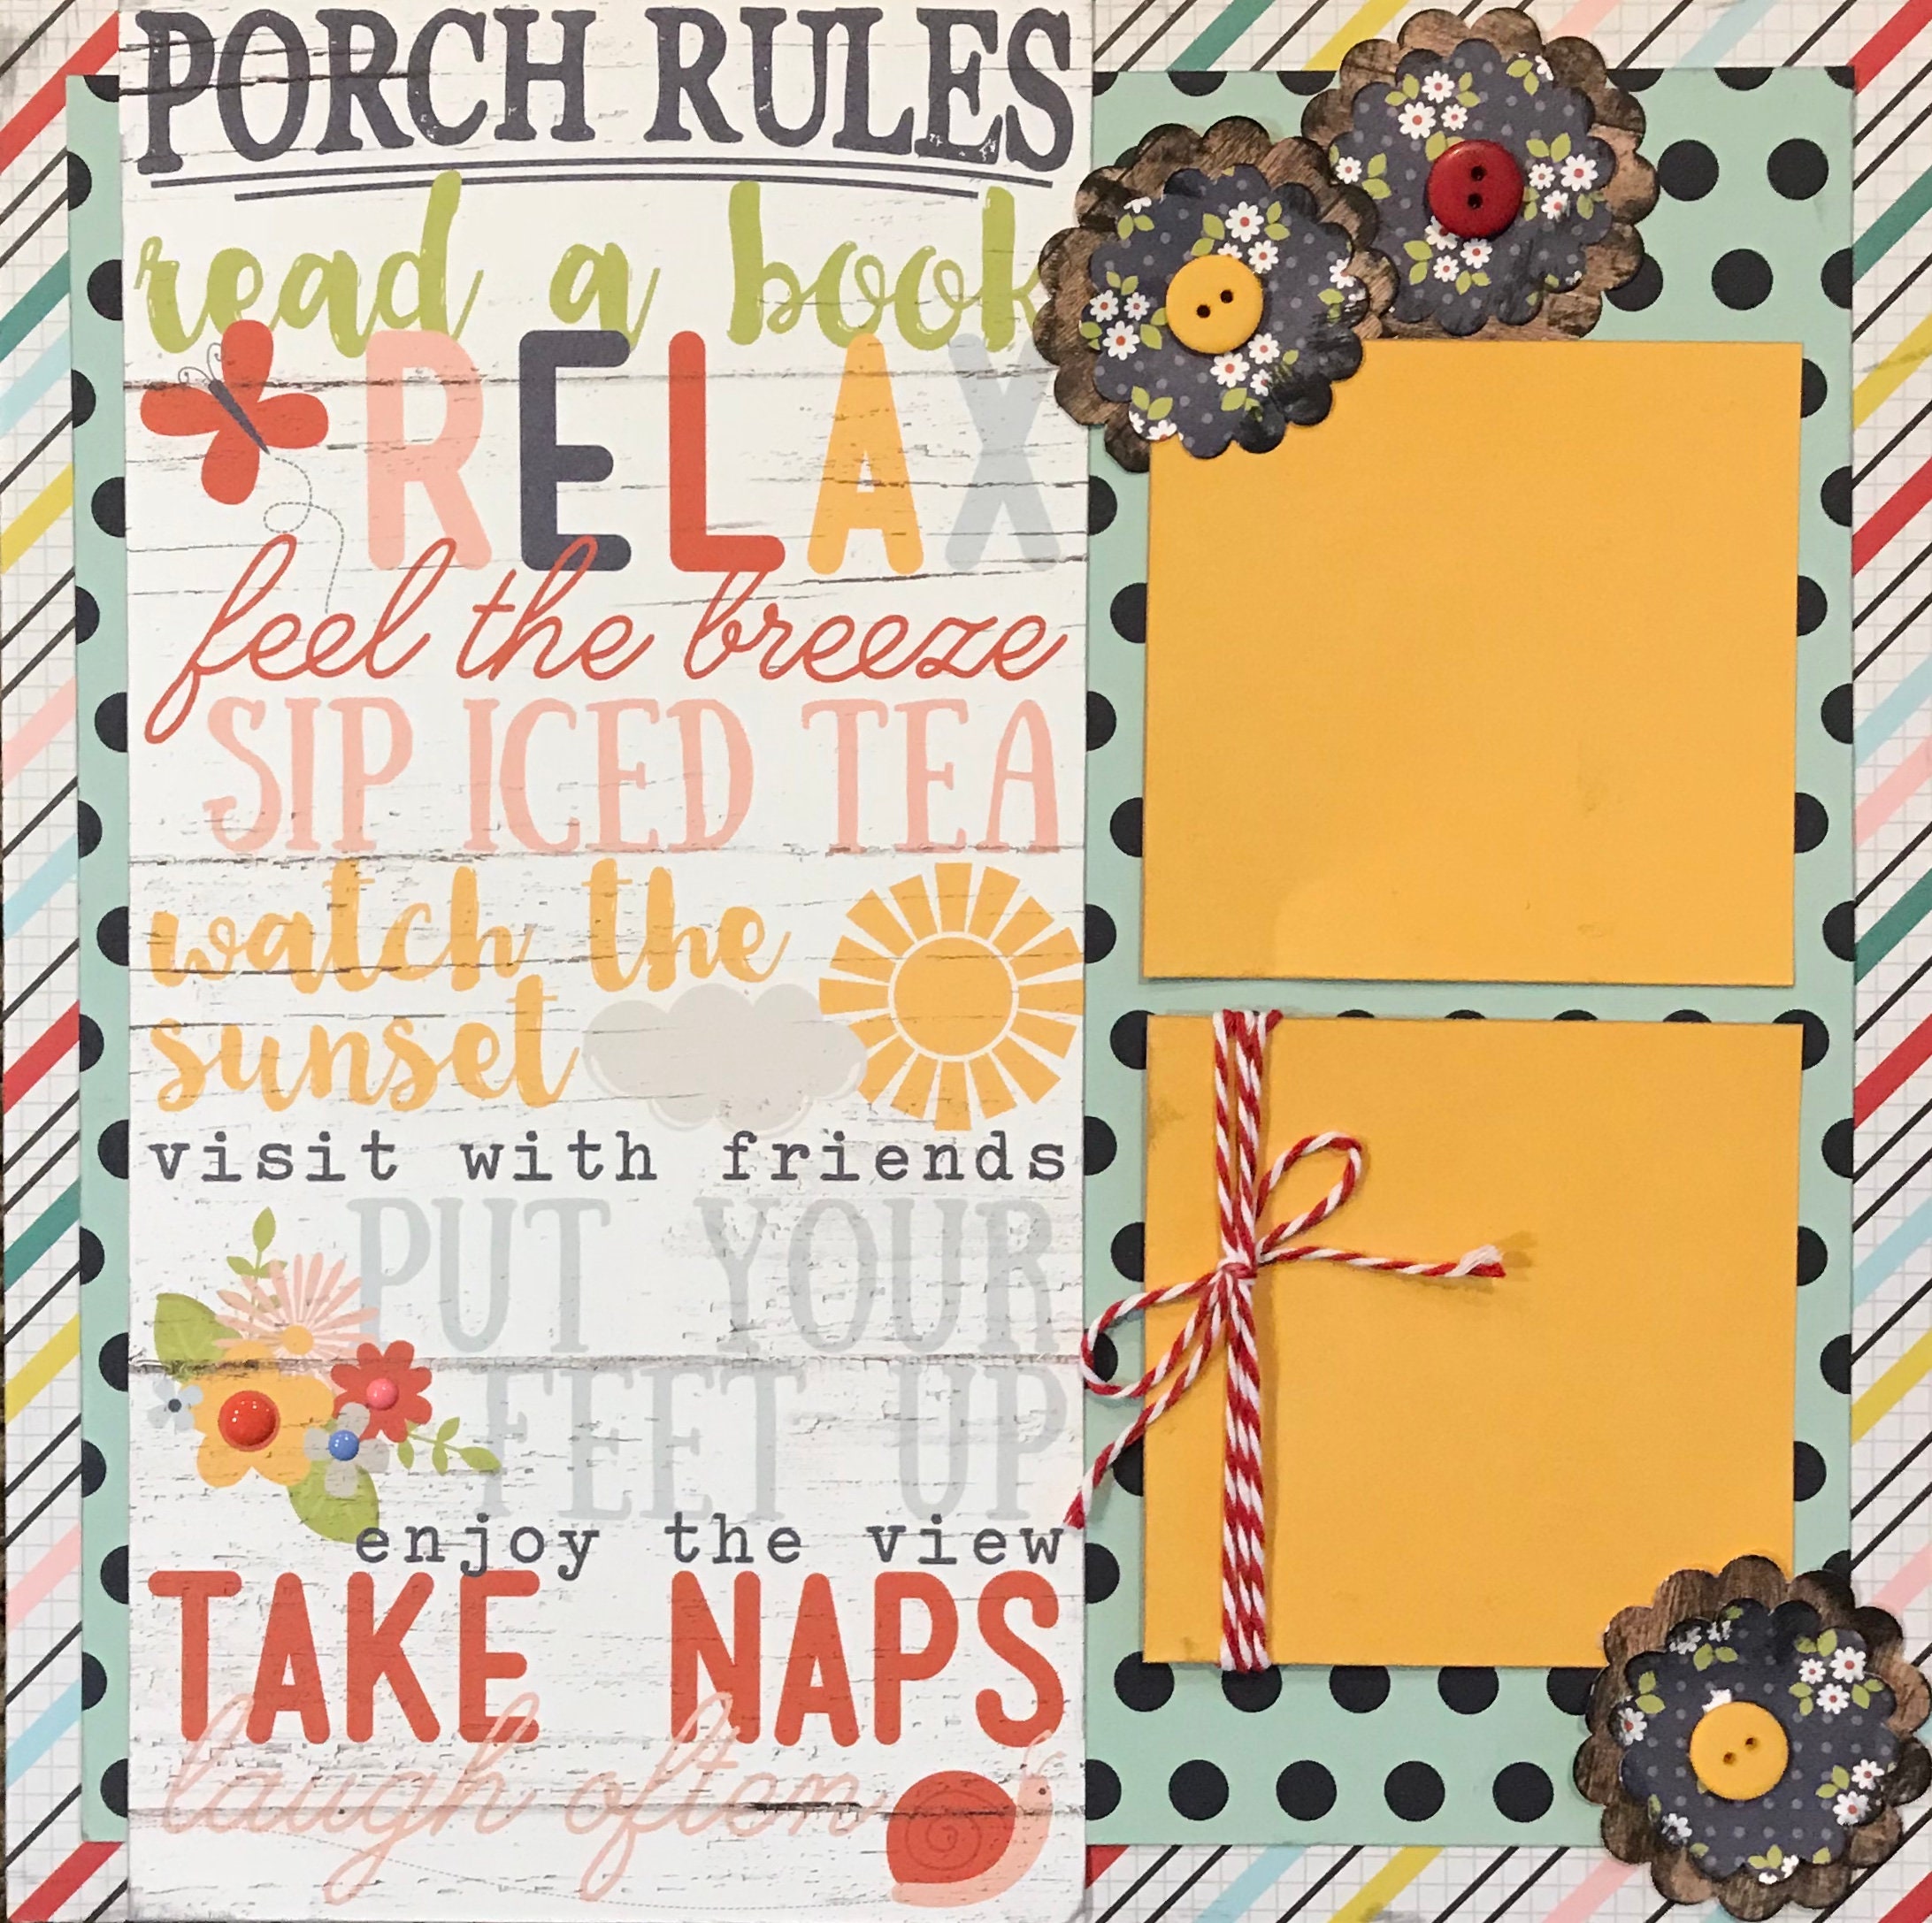 PORCH RULES
read a book
RELAX
feel the breeze
SIP ICED TEA
watch the
sunset
visit with friends
PUT YOUR
FEET UP
enjoy the view
TAKE NAPS
laugh often